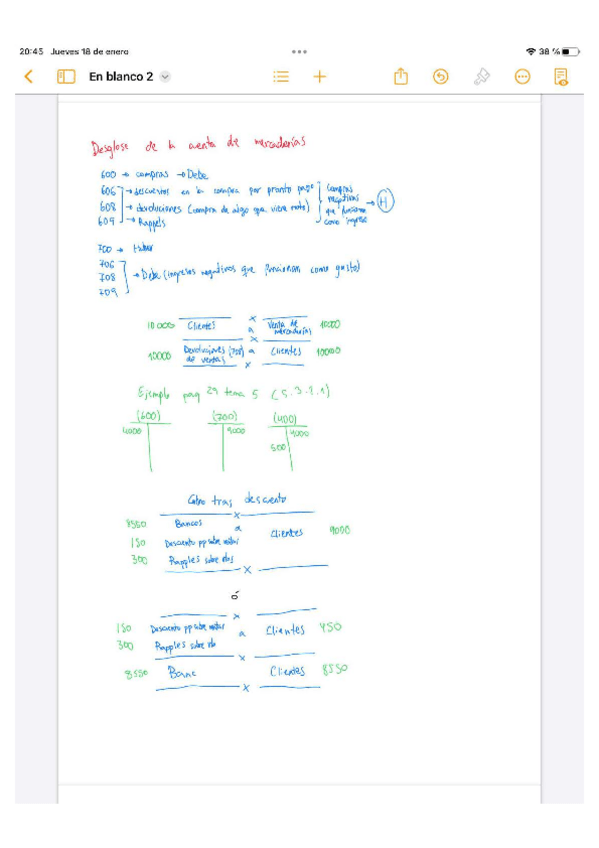 20:45 Jueves 18 de enero
38 %
En blanco 2
Desglose de la cuenta de mercaderías
600 → compras → Debe
606 → descuentos en la compra por pronto pago
608 → devoluciones (compra de algo que viene roto)
609 → Rappels
Compras negativas que funcionan como ingreso → H
700 → Haber
706
708 → Debe (ingresos negativos que funcionan como gasto)
709
x
10000 Clientes a Venta de mercaderías 10000
x
10000 Devoluciones (708) de ventas a Clientes 10000
x
Ejemplo pag 29 tema 5
(600) (700) (400)
4000 9000 4000
500
Cobro tras descuento
x
8550 Bancos a Clientes 9000
150 Descuento pp sobre ventas
300 Rapples sobre vtas
x
ó
x
150 Descuento pp sobre ventas a Clientes 450
300 Rapples sobre vta
x
8550 Banco Clientes 8550
x